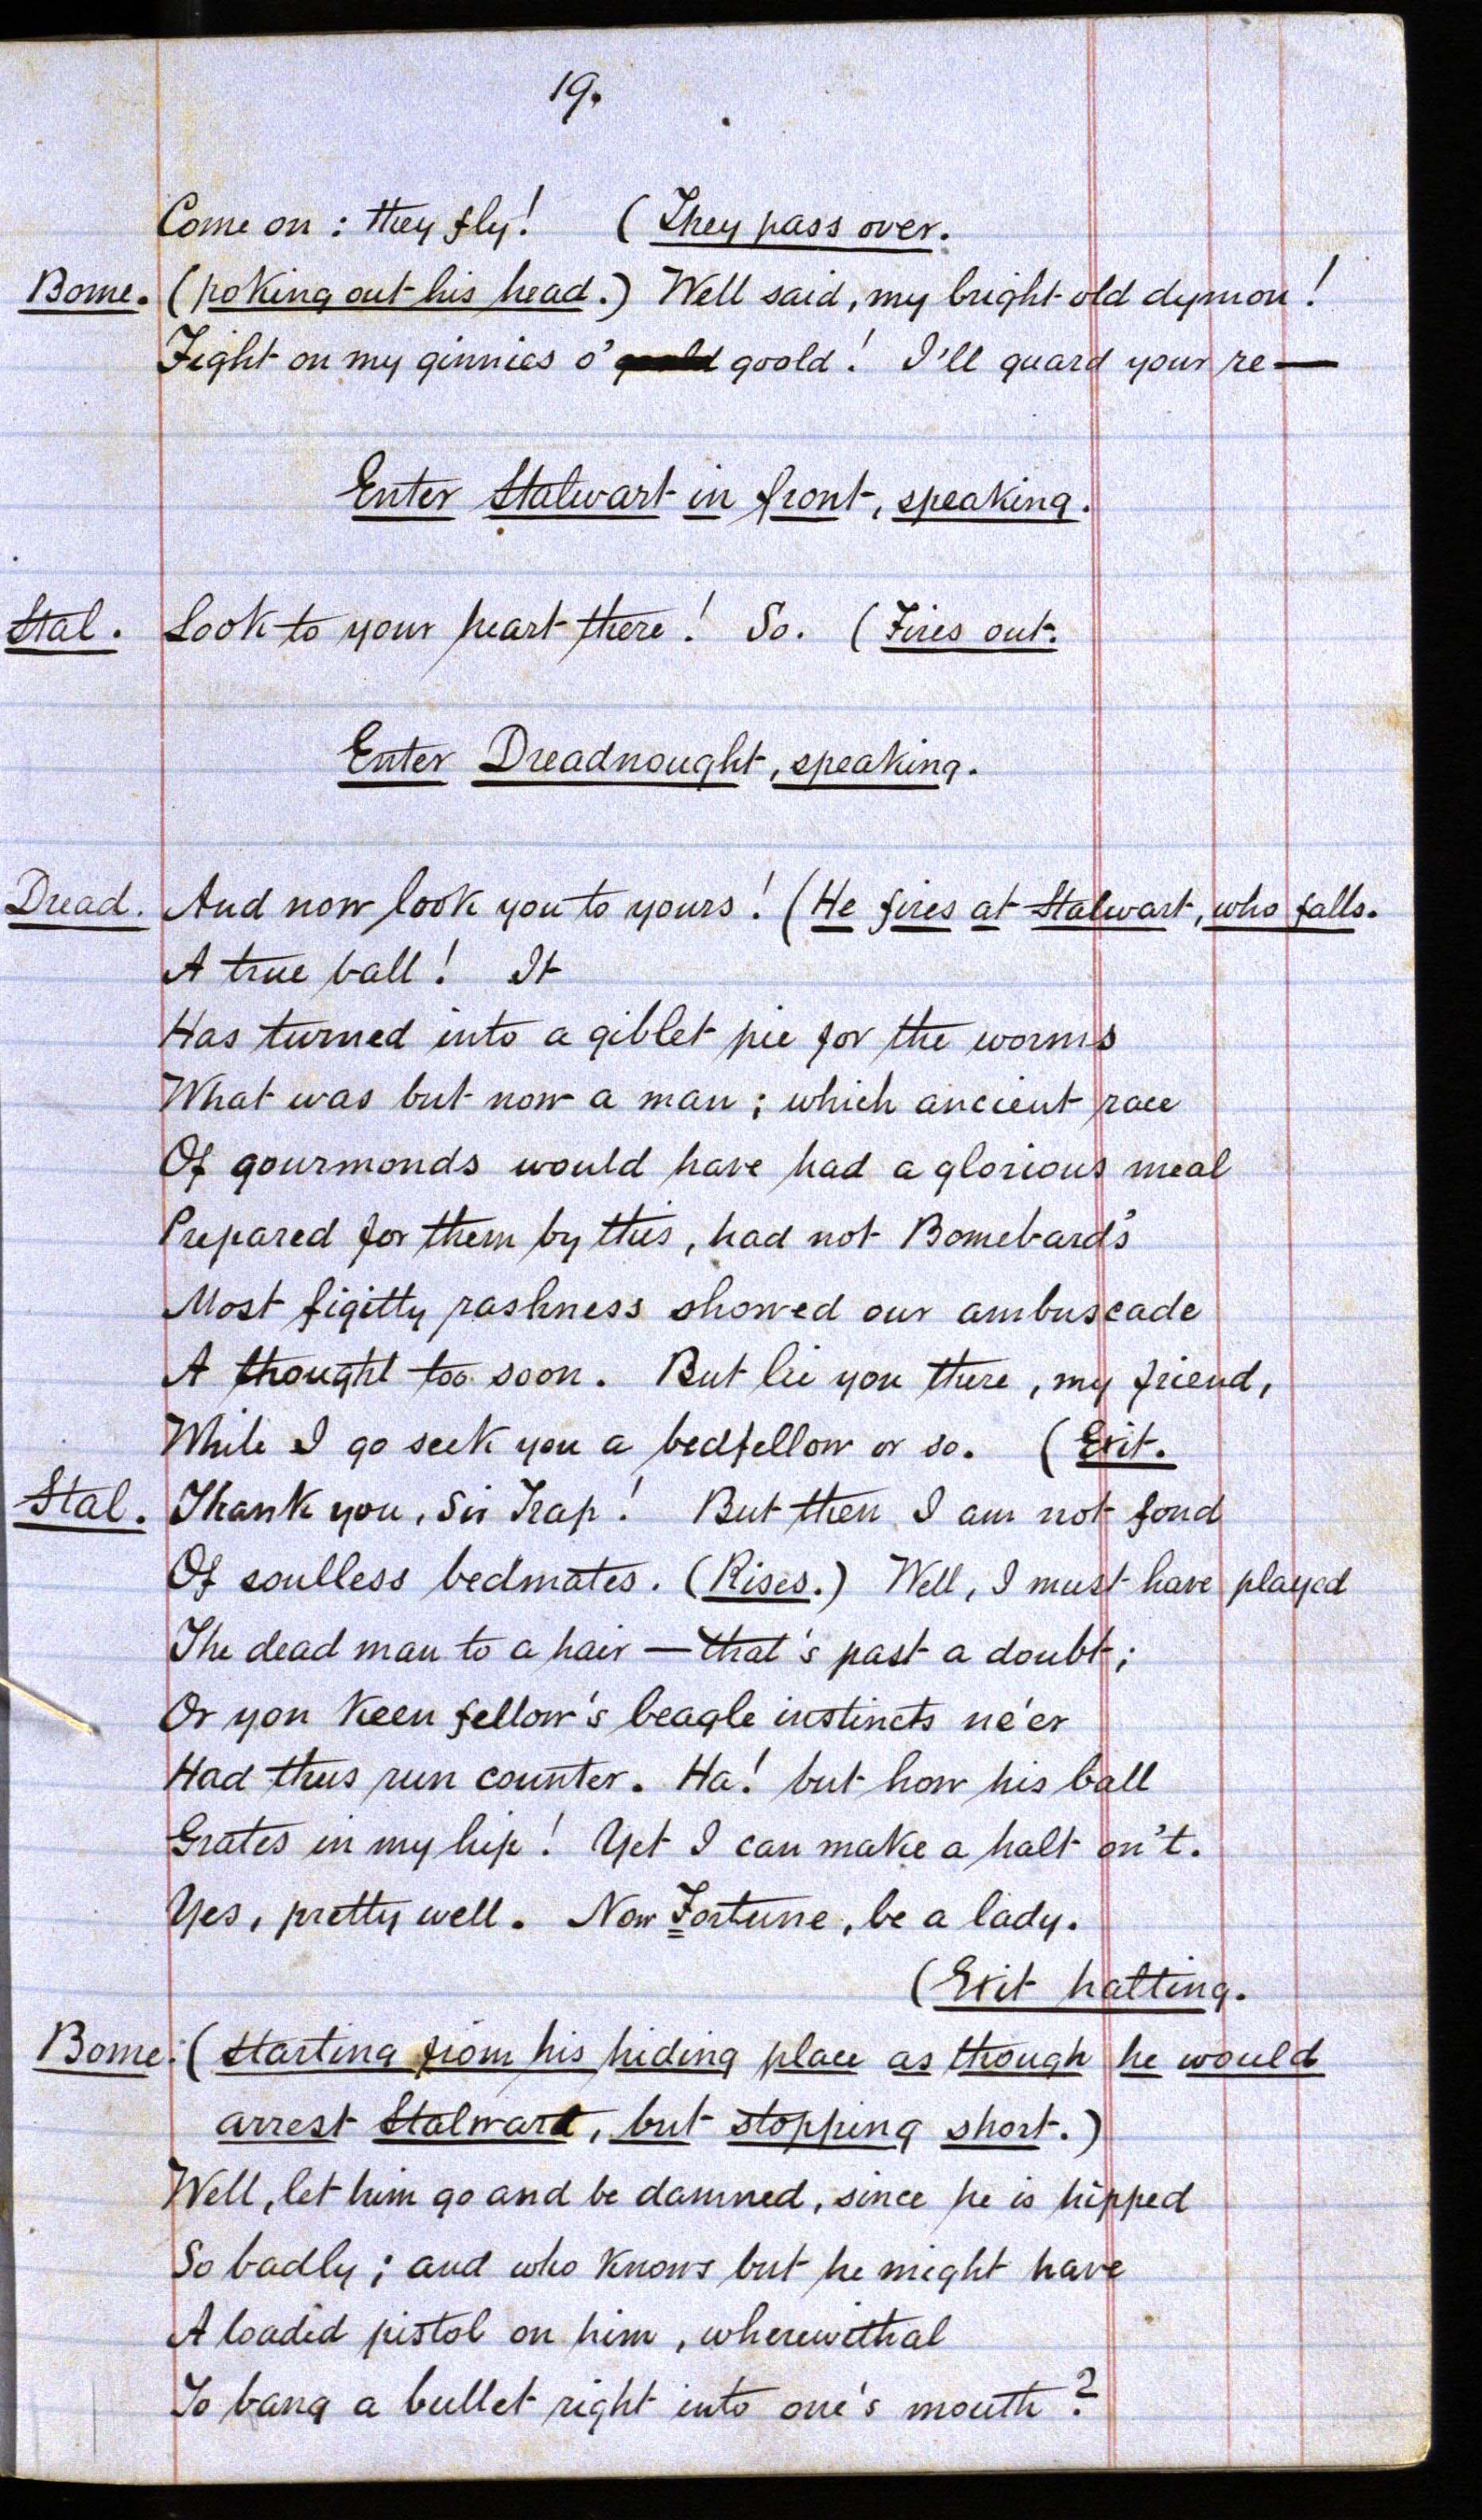 19.
Come on : they fly! (They pass over.
Bome. (poking out his head.) Well said, my bright old dymon!
Fight on my ginnies o' goold! I'll guard your re—
Enter Stalwart in front, speaking.
Stal. Look to your heart there! So. (Fires out.
Enter Dreadnought, speaking.
Dread. And now look you to yours! (He fires at Stalwart, who falls.
A true ball! It
Has turned into a giblet pie for the worms
What was but now a man; which ancient race
Of gourmonds would have had a glorious meal
Prepared for them by this, had not Bomebard's
Most figitty rashness showed our ambuscade
A thought too soon. But lie you there, my friend,
While I go seek you a bedfellow or so. (Exit.
Stal. Thank you, Sir Trap! But then I am not fond
Of soulless bedmates. (Rises.) Well, I must have played
The dead man to a hair — that's past a doubt;
Or yon keen fellow's beagle instincts ne'er
Had thus run counter. Ha! but how his ball
Grates in my hip! Yet I can make a halt on't.
Yes, pretty well. Now Fortune, be a lady.
(Exit halting.
Bome. (starting from his hiding place as though he would
arrest Stalwart, but stopping short.)
Well, let him go and be damned, since he is hipped
So badly; and who knows but he might have
A loaded pistol on him, wherewithal
To bang a bullet right into one's mouth?